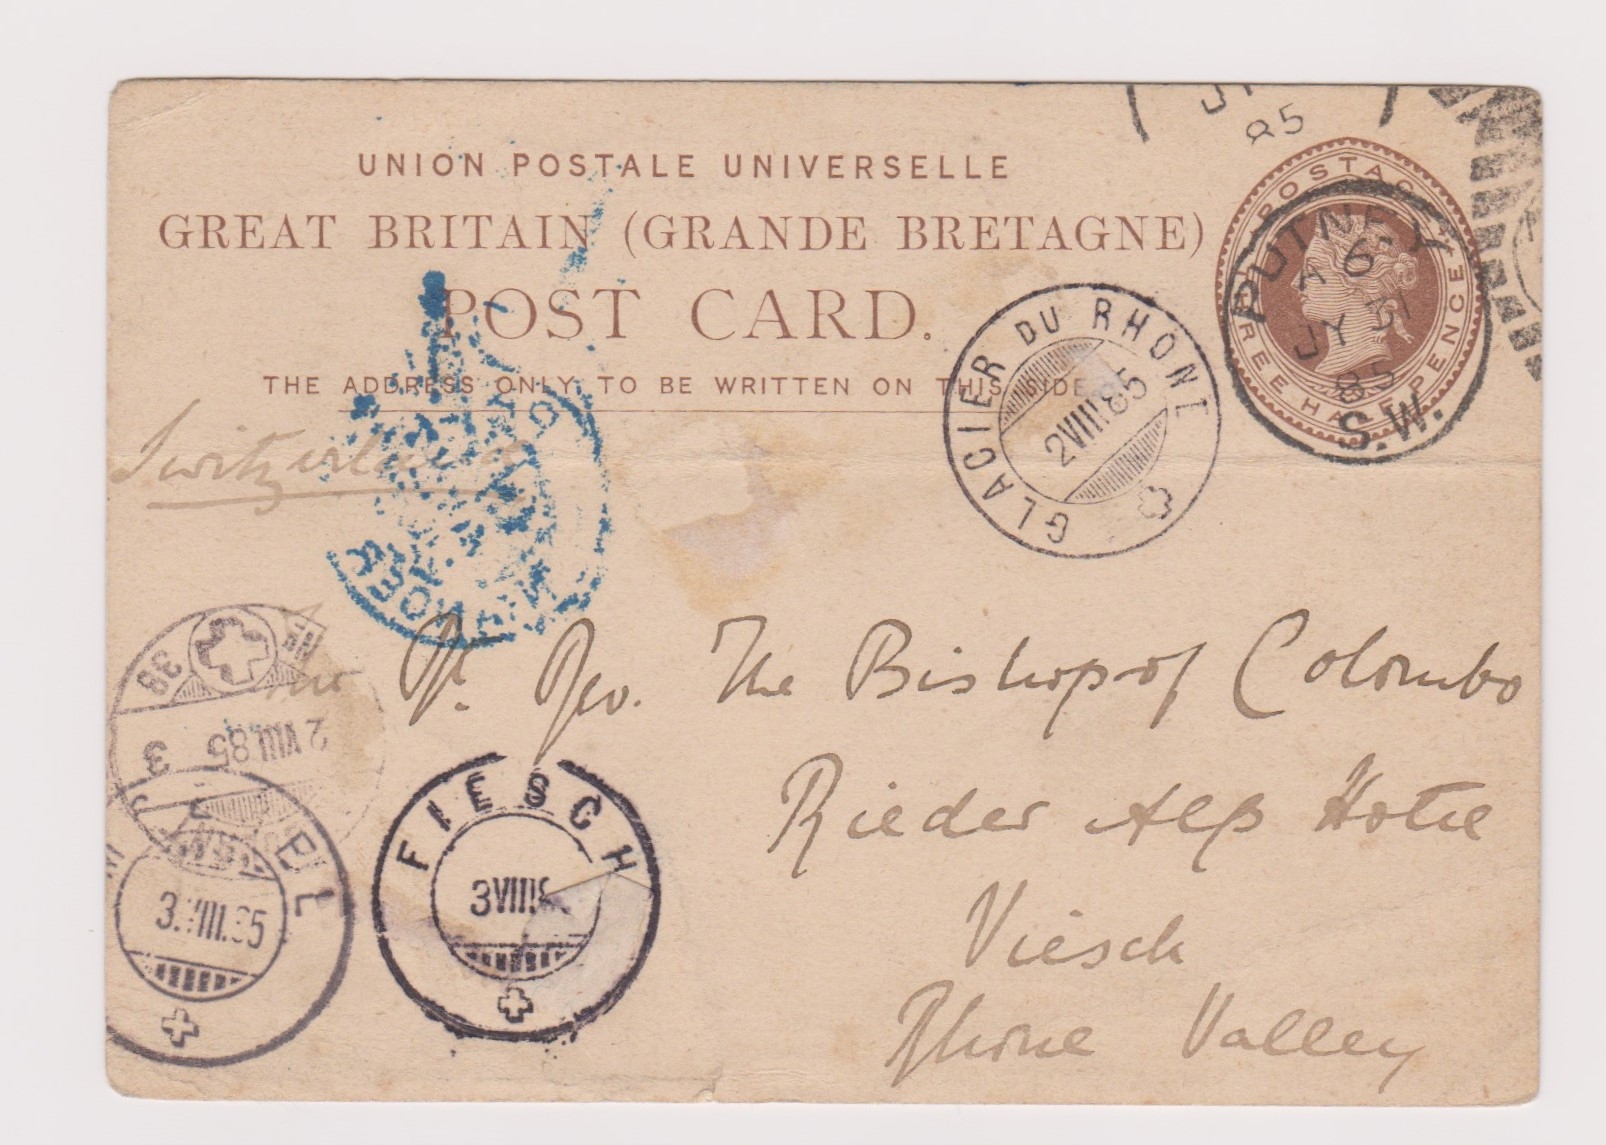 JY
85
UNION POSTALE UNIVERSELLE
GREAT BRITAIN (GRANDE BRETAGNE)
POST CARD.
THE ADDRESS ONLY TO BE WRITTEN ON THIS SIDE
POSTAGE
THREE HALF PENCE
PUTNEY
A 6
JY 31
85
S.W.
GLACIER DU RHONE
2 VIII 85
Switzerland
Rt. Rev. The Bishop of Colombo
Rieder Alp Hotel
Viesch
Rhone Valley
38
2 VIII.85
3
3.VIII.85
FIESCH
3 VIII 8